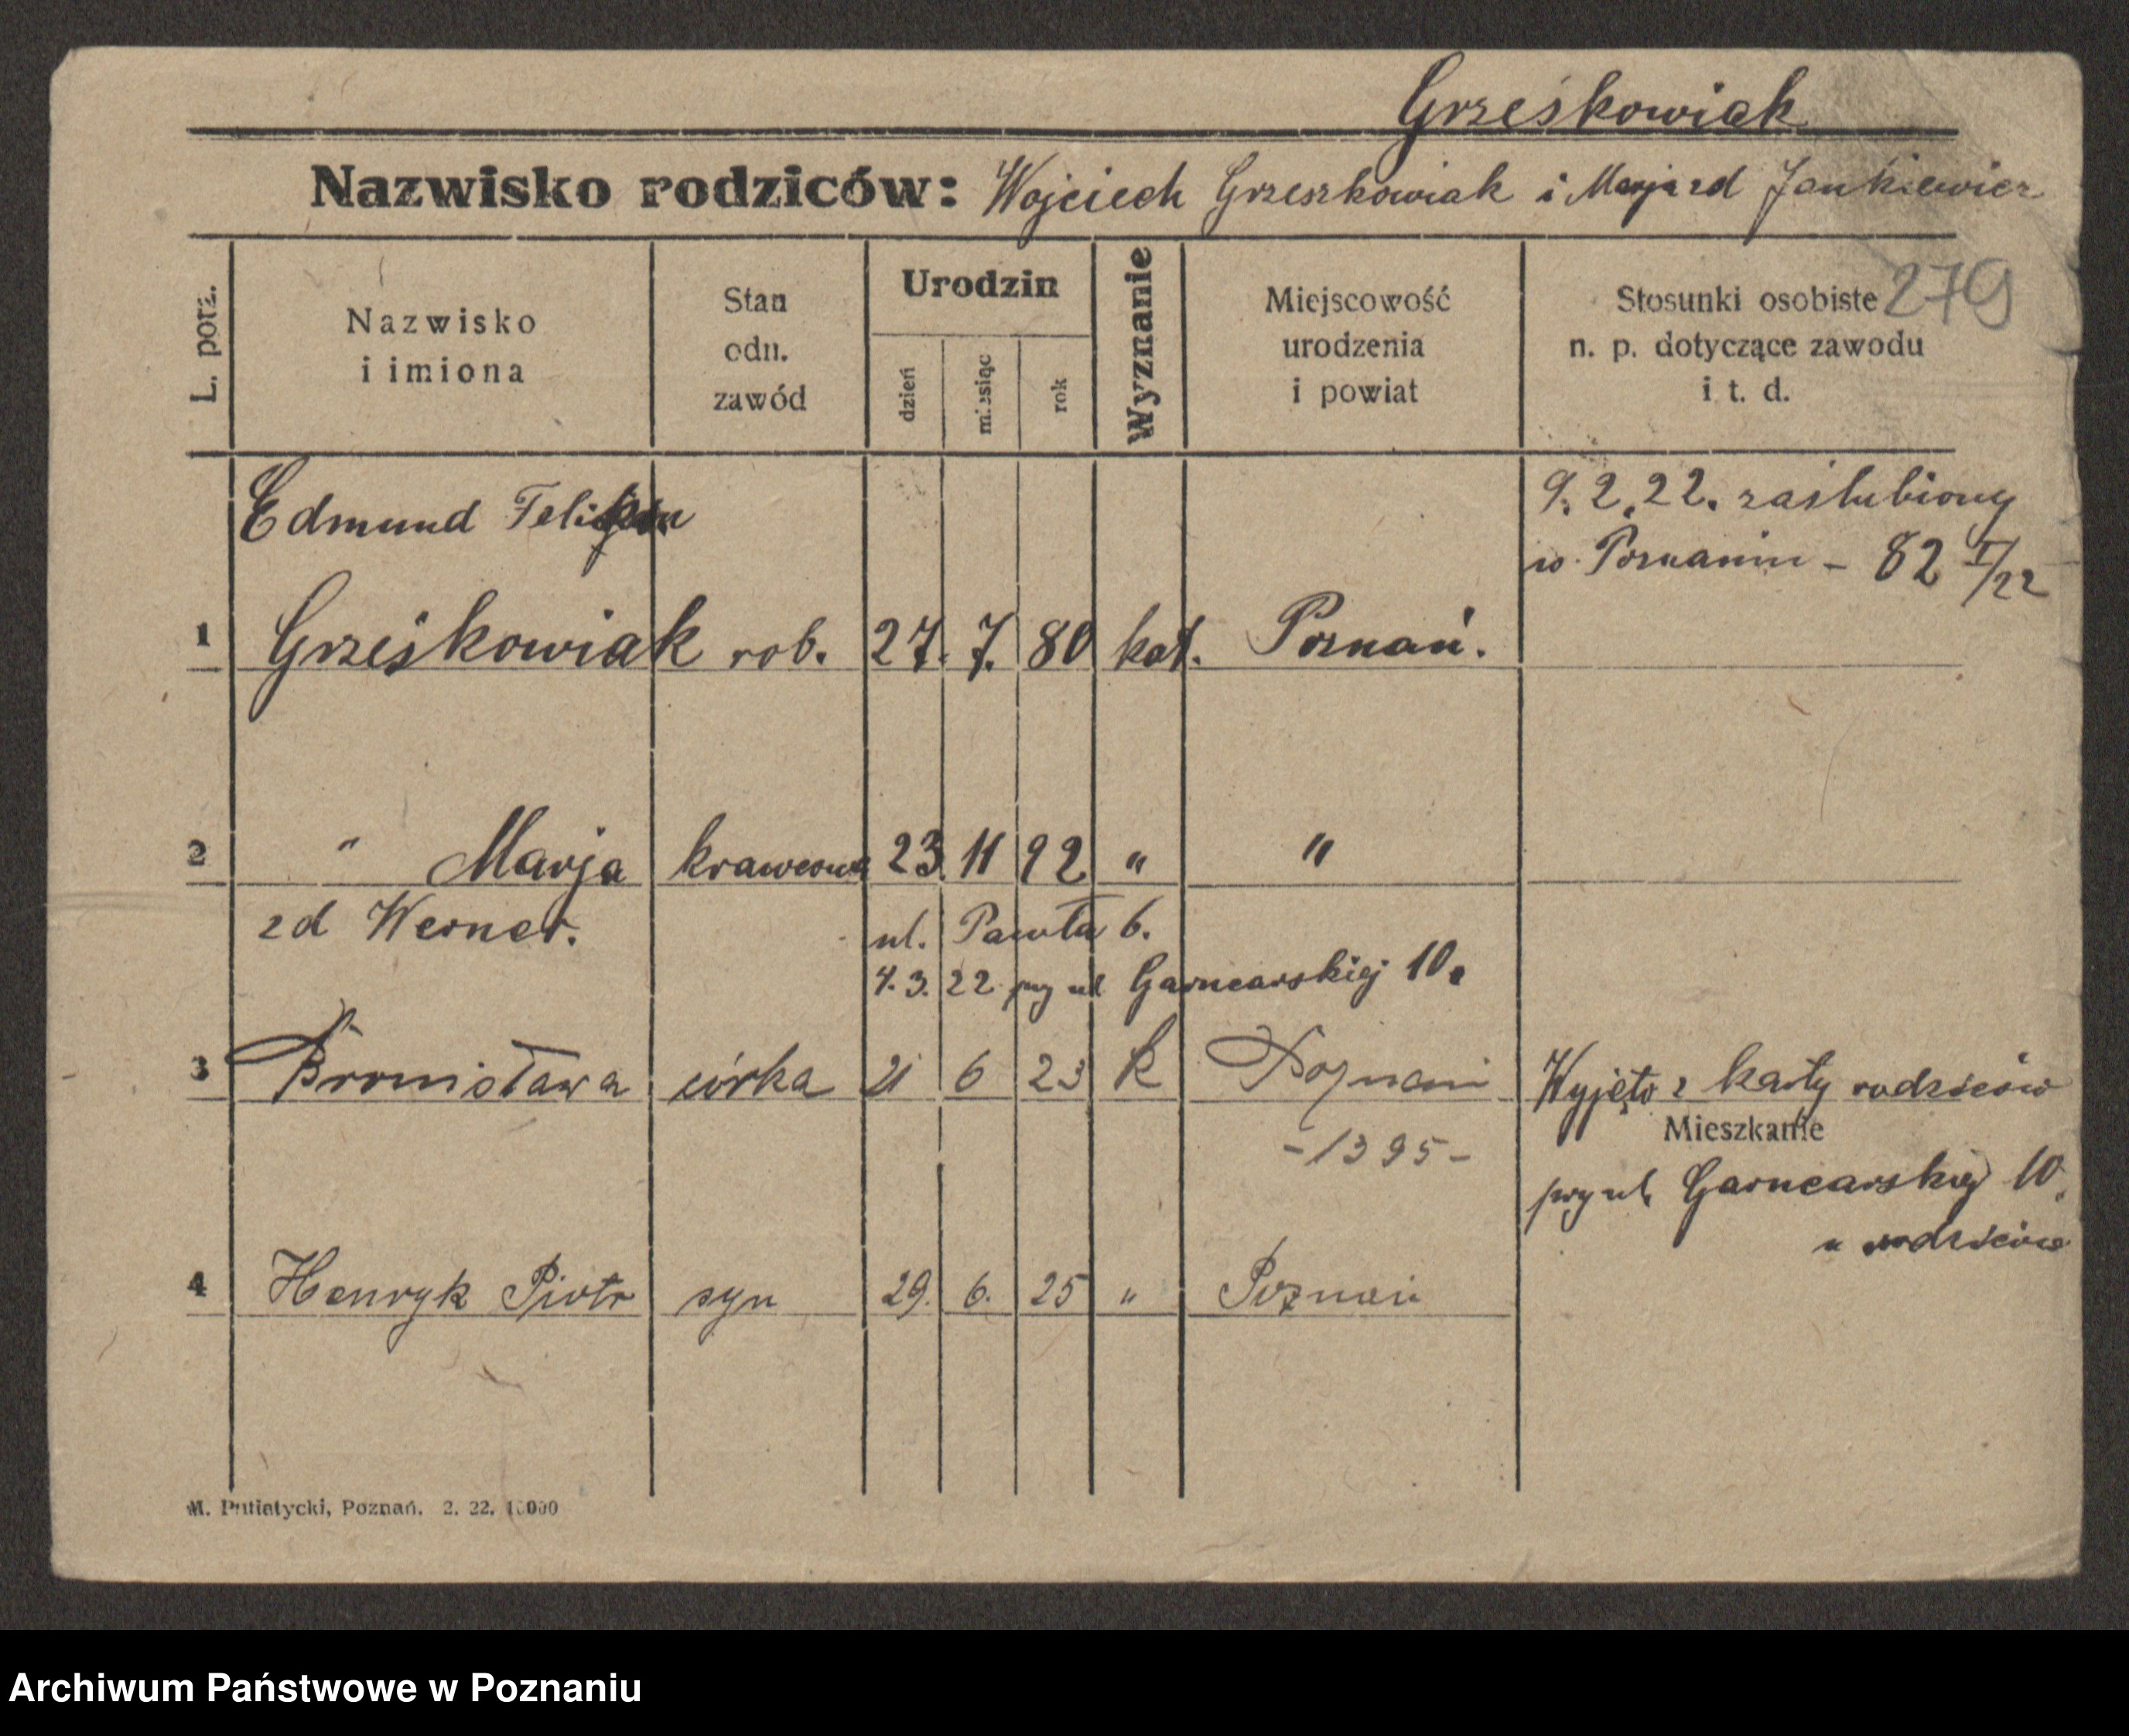 Grześkowiak
Nazwisko rodziców: Wojciech Grzeszkowiak i Marja zd Jankiewicz
279
L. porz.
Nazwisko
i imiona
Stan
odn.
zawód
Urodzin
dzień
miesiąc
rok
Wyznanie
Miejscowość
urodzenia
i powiat
Stosunki osobiste
n. p. dotyczące zawodu
i t. d.
Edmund
9. 2. 22. zaślubiony
w Poznaniu - 82 I/22
1 Grześkowiak rob. 27. 7. 80 kat. Poznań.
2 " Marja 23. 11 92 " "
zd Werner.
ul. Pawła 6.
4. 3. 22 przy ul Garncarskiej 10.
3 Bronisława córka 21 6 23 k Poznań Wyjęto z karty rodziców
Mieszkanie
-1395-
przy ul. Garncarskiej 10.
u rodziców
4 Henryk Piotr syn 29. 6. 25 " Poznań
M. Putiatycki, Poznań. 2. 22. 10000
Archiwum Państwowe w Poznaniu